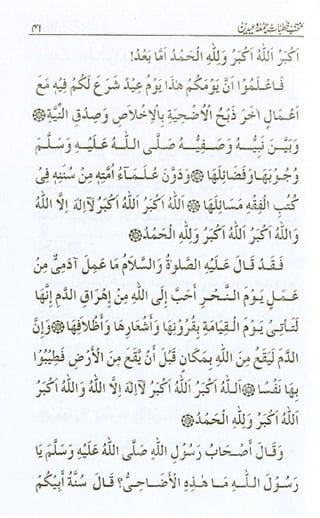 منتخب خطبات جمعہ و عیدین ۴۱
اَكْبَرُ اَللّٰهُ اَكْبَرُ وَلِلّٰهِ الْحَمْدُ اَمَّا بَعْدُ!
فَاعْلَمُوْا اَنَّ يَوْمَكُمْ هٰذَا يَوْمُ عِيْدٍ شَرَعَ لَكُمْ فِيْهِ مَعَ
اَعْمَالٍ اٰخَرَ ذَبْحُ الْاُضْحِيَةِ بِالْاِخْلَاصِ وَصِدْقِ النِّيَّةِ ۞
وَبَيَّنَ نَبِيُّهٗ وَصَفِيُّهٗ صَلَّى اللهُ عَلَيْهِ وَسَلَّمَ
وُجُوْبَهَا وَفَضَائِلَهَا ۞ وَدَوَّنَ عُلَمَاءُ اُمَّتِهٖ مِنْ سُنَنِهٖ فِيْ
كُتُبِ الْفِقْهِ مَسَائِلَهَا ۞ اَللهُ اَكْبَرُ اَللهُ اَكْبَرُ لَآ اِلٰهَ اِلَّا اللهُ
وَاللهُ اَكْبَرُ اَللهُ اَكْبَرُ وَلِلّٰهِ الْحَمْدُ ۞
فَقَدْ قَالَ عَلَيْهِ الصَّلٰوةُ وَالسَّلَامُ مَا عَمِلَ اٰدَمِيٌّ مِنْ
عَمَلٍ يَوْمَ النَّحْرِ اَحَبَّ اِلَى اللهِ مِنْ اِهْرَاقِ الدَّمِ اِنَّهَا
لَتَأْتِيْ يَوْمَ الْقِيَامَةِ بِقُرُوْنِهَا وَاَشْعَارِهَا وَاَظْلَافِهَا ۞ وَاِنَّ
الدَّمَ لَيَقَعُ مِنَ اللهِ بِمَكَانٍ قَبْلَ اَنْ يَّقَعَ مِنَ الْاَرْضِ فَطِيْبُوْا
بِهَا نَفْسًا ۞ اَللهُ اَكْبَرُ اَللهُ اَكْبَرُ لَآ اِلٰهَ اِلَّا اللهُ وَاللهُ اَكْبَرُ
اَللهُ اَكْبَرُ وَلِلّٰهِ الْحَمْدُ ۞
وَقَالَ اَصْحَابُ رَسُوْلِ اللهِ صَلَّى اللهُ عَلَيْهِ وَسَلَّمَ يَا
رَسُوْلَ اللهِ مَا هٰذِهِ الْاَضَاحِيُّ؟ قَالَ سُنَّةُ اَبِيْكُمْ